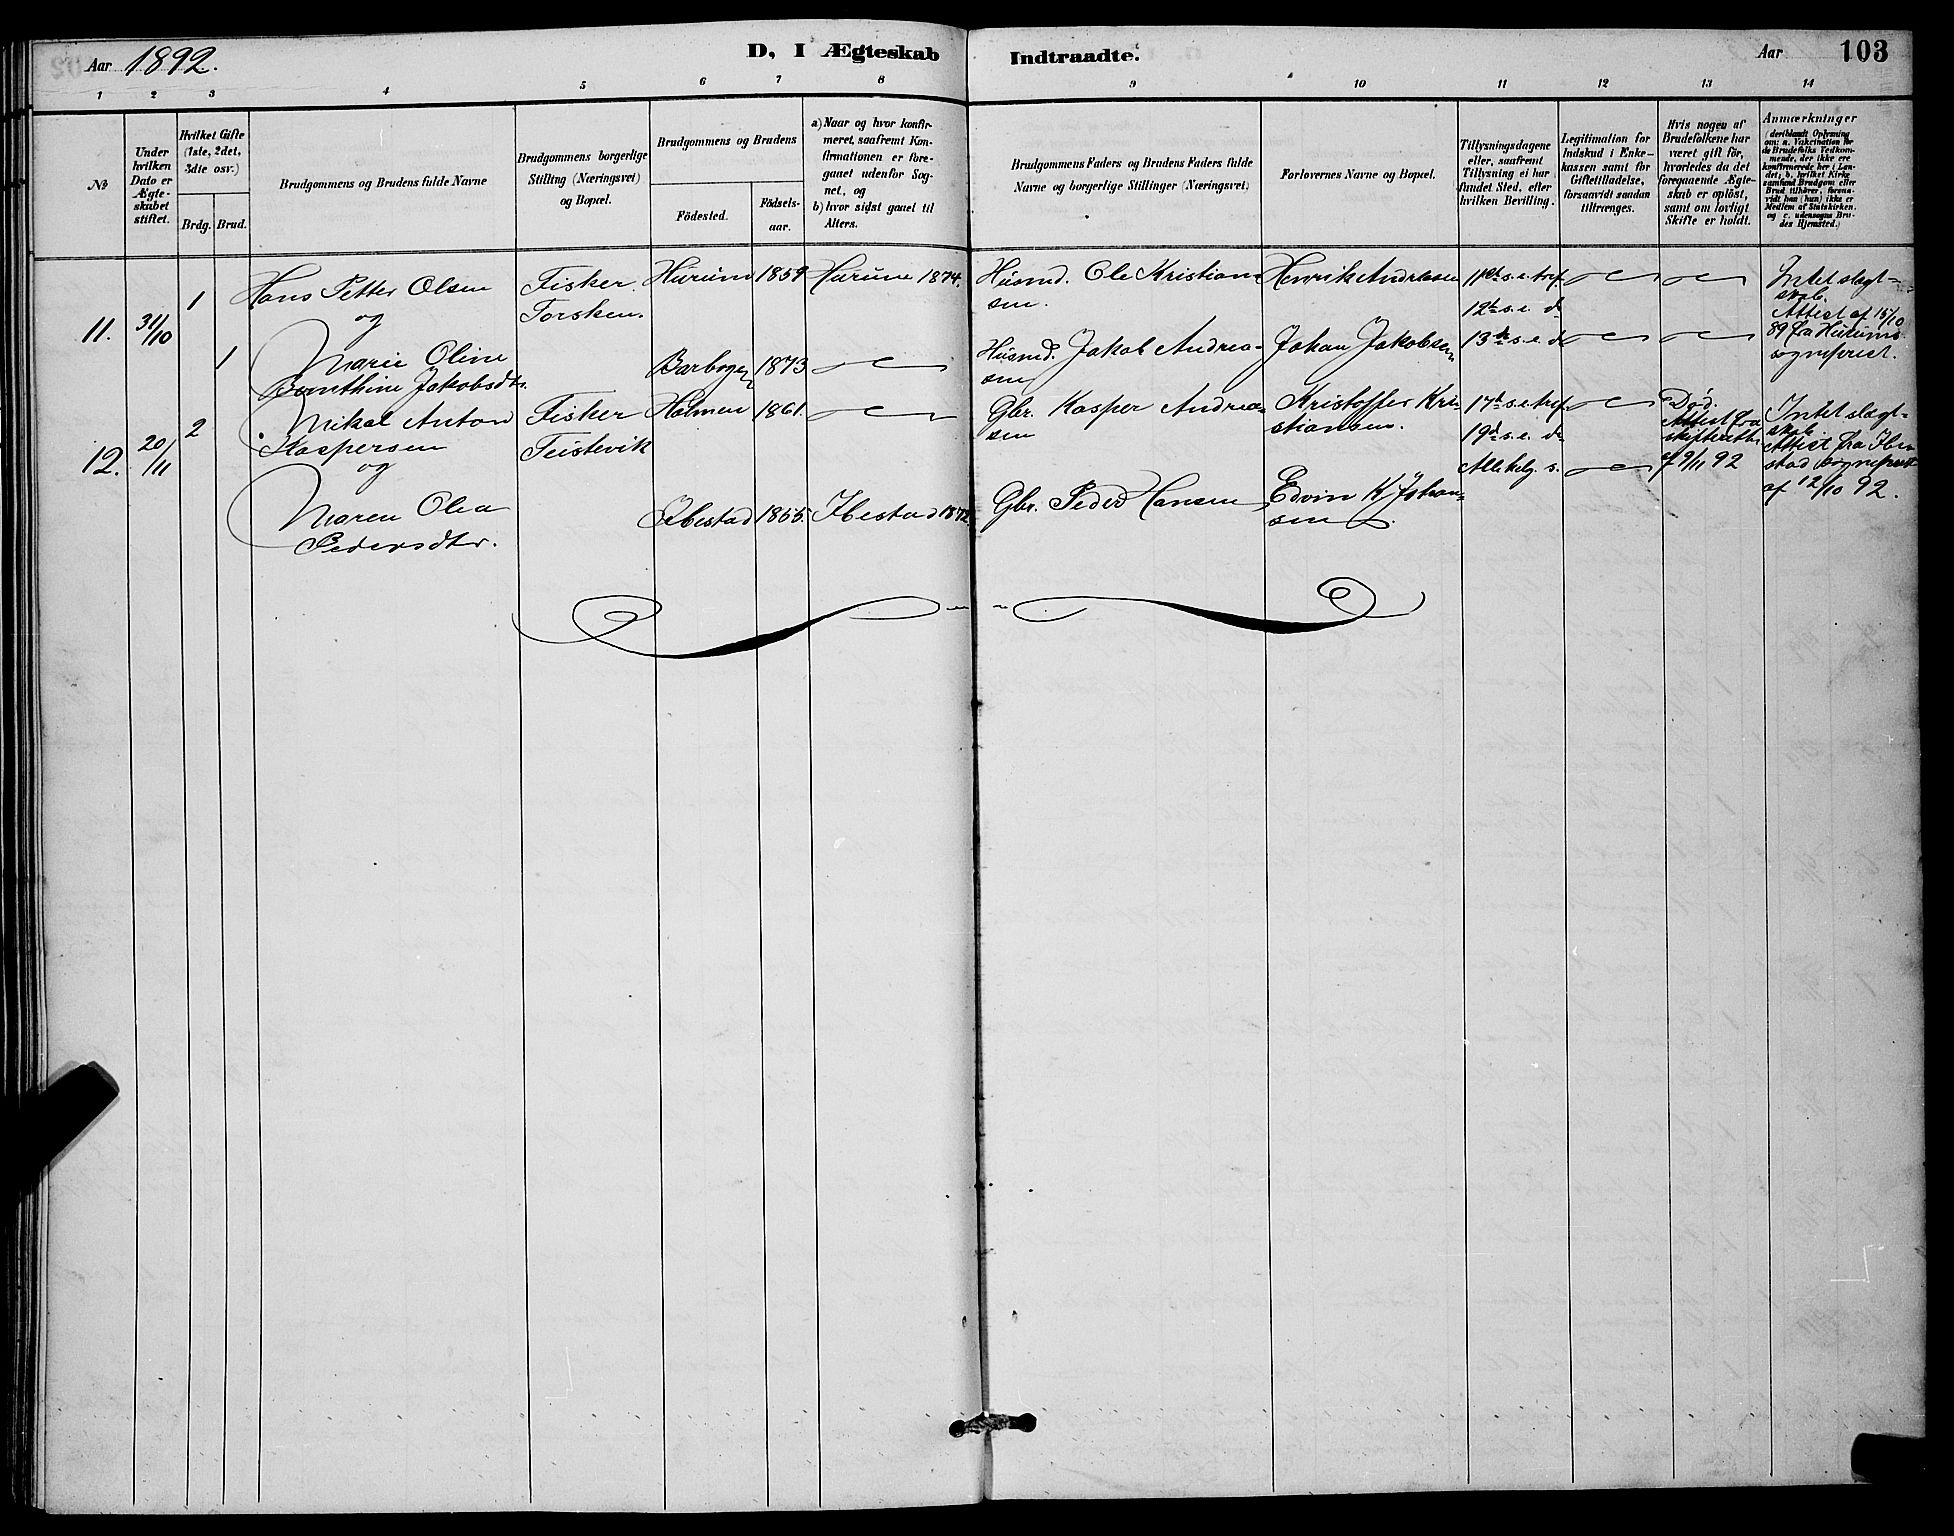 Aar 1892.
D, I Ægteskab Indtraadte.
Aar 103
1 2 3 4 5 6 7 8 9 10 11 12 13 14
No
Under hvilken Dato er Ægte-skabet stiftet.
Hvilket Gifte (1ste, 2det, 3die osv.)
Brdg. Brud.
Brudgommens og Brudens fulde Navne
Brudgommens borgerlige Stilling (Næringsvei) og Bopæl.
Brudgommens og Brudens
Födested.
Födsels-aar.
a) Naar og hvor konfir-meret, saafremt Kon-firmationen er fore-gaaet udenfor Sog-net, og
b) hvor sidst gaaet til Alters.
Brudgommens Faders og Brudens Faders fulde Navne og borgerlige Stillinger (Næringsvei)
Forlovernes Navne og Bopæl.
Tillysningsdagene eller, saafremt Tillysning ei har fundet Sted, efter hvilken Bevilling.
Legitimation for Indskud i Enke-kassen samt for Giftetilladelse, forsaavidt saadan tiltrænges.
Hvis nogen af Brudefolkene har været gift för, hvorledes da det foregaaende Ægte-skab er oplöst, samt om lovligt Skifte er holdt.
Anmærkninger (deriblandt Oplysning om: a. Vakcination for de Brudefolks Vedkom-mende, der ikke ere konfirmerede her i Lan-det; b. hvilket Kirke-samfund Brudgom eller Brud tilhörer, forsaa-vidt han (hun) ikke er Medlem af Statskirken. og c. udensogns Bru-des Hjemsted.)
11. 31/10 1 Hans Petter Olsen
og
Fisker
Torsken.
Hurum 1859 Hurum 1874.
Husmd. Ole Kristian-
sen.
Henrik Andreassen
11te s. e. tref.
12te s. e. d
13de s. e. d
Intet slægt-
skab.
Attest af 15/10
89 fra Hurums
sogneprest.
1 Marie Oline
Jakobsdtr.
1873
Husmd. Jakob Andrea-
sen
Johan Jakobsen
12. 20/11 2 Mikal Anton
Kaspersen
og
Fisker
Teistevik
Holmen 1861.
Gbr. Kasper Andrea-
sen
Kristoffer Kri-
stiansen.
17de s. e. tref.
19de s. e. d
Alle helg. s.
Død.
Attest fra
skifteretten
af 9/11 92
Intet slægt-
skab.
Attest fra Ibe-
stad sogneprest
af 12/10 92.
Maren Olea
Pedersdtr.
Ibestad 1855. Ibestad 1872.
Gbr. Peder Hansen
Edvin K. Johan-
sen.